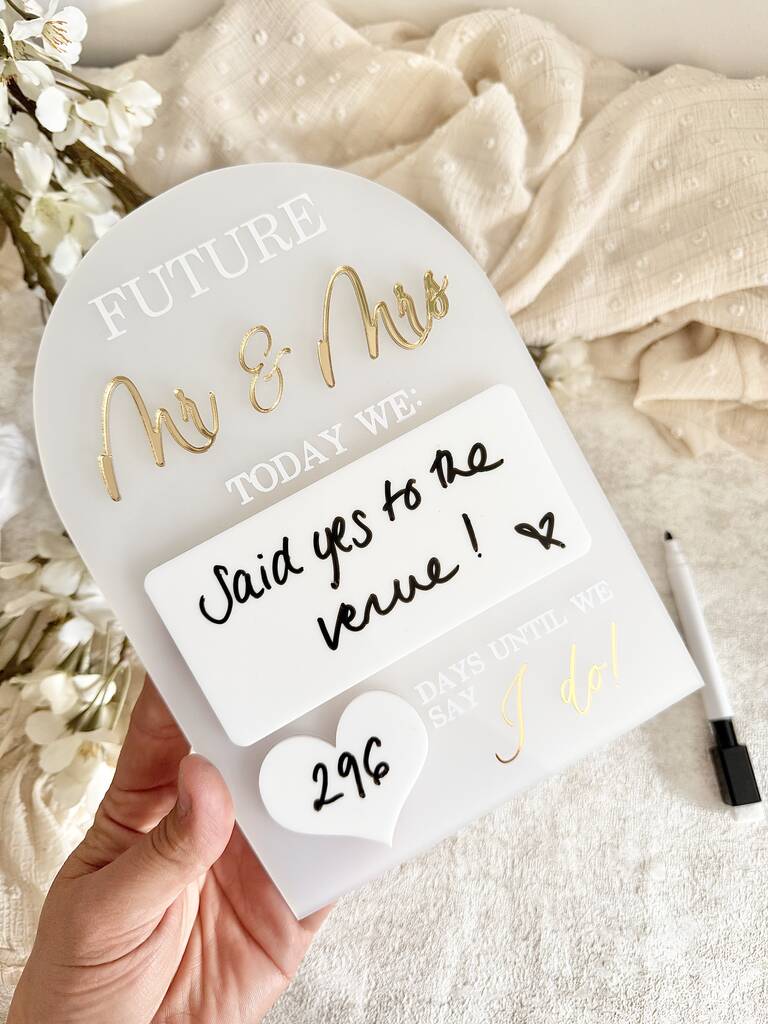 FUTURE
Mr & Mrs
TODAY WE:
Said yes to the
venue!
296
DAYS UNTIL WE
SAY I do!